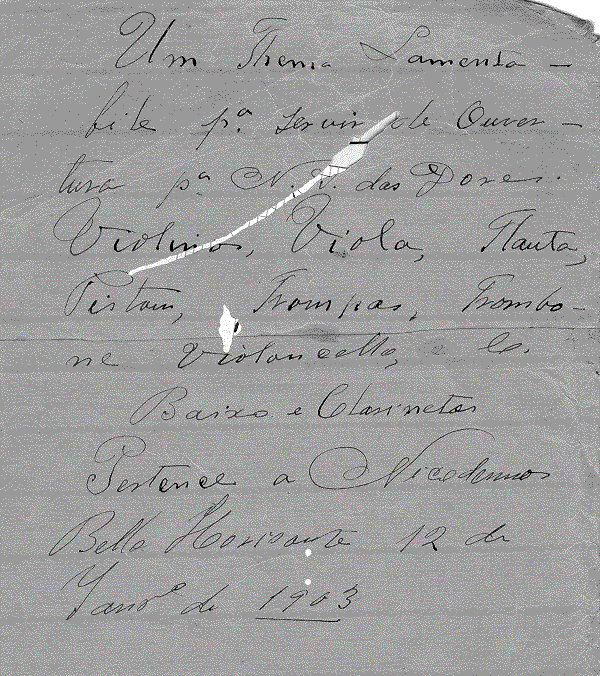 Um Thema Lamenta-
bile pª. servir de Ouver-
tura pª N. S. das Dores.
Violinos, Viola, Flauta,
Pistom, Trompas, Trombo-
ne Violoncello, e
Baixo e Clarinetas
Pertence a Nicodemos
Bello Horisonte 12 de
Janrº de 1903